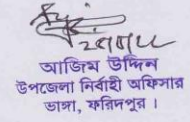 আজিম উদ্দিন
উপজেলা নির্বাহী অফিসার
ভাঙ্গা, ফরিদপুর ।